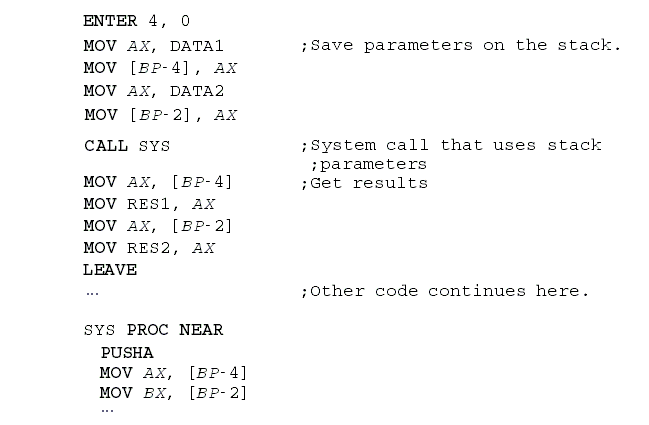 ENTER 4, 0
MOV AX, DATA1 ;Save parameters on the stack.
MOV [BP-4], AX
MOV AX, DATA2
MOV [BP-2], AX
CALL SYS ;System call that uses stack
;parameters
MOV AX, [BP-4] ;Get results
MOV RES1, AX
MOV AX, [BP-2]
MOV RES2, AX
LEAVE
... ;Other code continues here.
SYS PROC NEAR
PUSHA
MOV AX, [BP-4]
MOV BX, [BP-2]
...